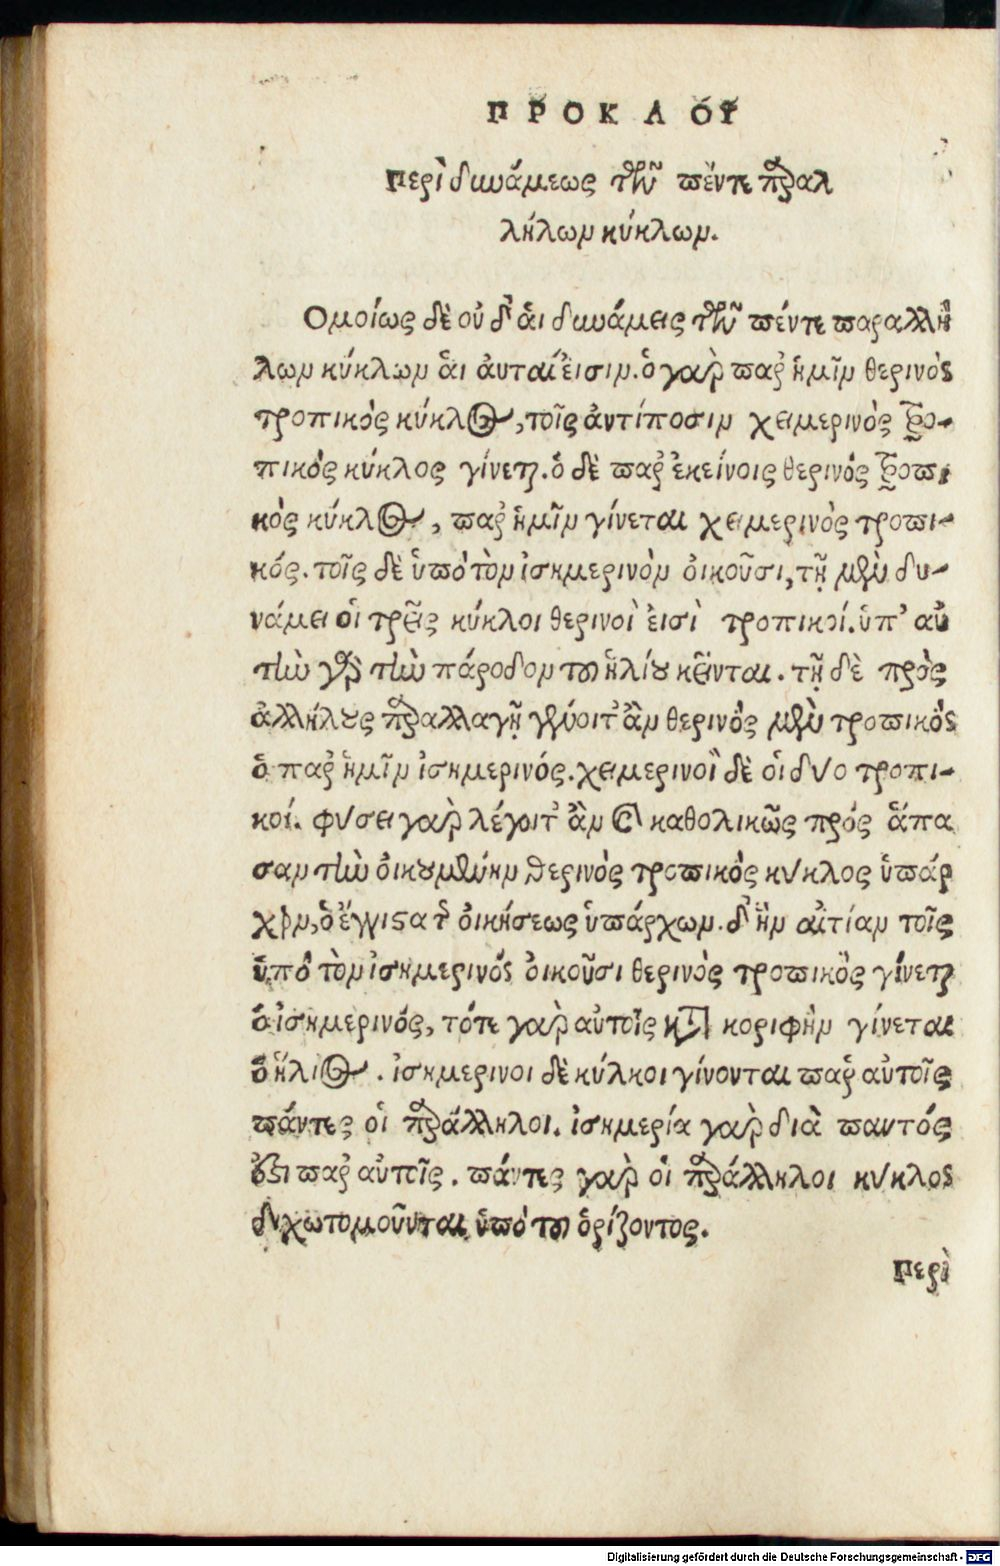 ΠΡΟΚΛΟΥ
Περὶ δυνάμεως τῶν πέντε παραλ
λήλων κύκλων.
Ομοίως δὲ οὐδ' ἁι δυνάμεις τῶν πέντε παραλλή
λων κύκλων ἁι ἀυταί ἐισιν. ὁ γὰρ παρ' ἡμῖν θερινὸς
τροπικὸς κύκλος, τοῖς ἀντίποσιν χειμερινὸς τρο-
πικὸς κύκλος γίνεται. ὁ δὲ παρ' ἐκείνοις θερινὸς τροπι
κὸς κύκλος, παρ' ἡμῖν γίνεται χειμερινὸς τροπι-
κός. τοῖς δὲ ὑπὸ τὸν ἰσημερινὸν ὀικοῦσι, τῇ μὲν δυ-
νάμει ὁι τρεῖς κύκλοι θερινοὶ ἐισὶ τροπικοί. ὑπ' αὐ
τὴν γὰρ τὴν πάροδον τοῦ ἡλίου κεῖνται. τῇ δὲ πρὸς
ἀλλήλους παραλλαγῇ γένοιτ' ἂν θερινὸς μὲν τροπικὸς
ὁ παρ' ἡμῖν ἰσημερινός. χειμερινοὶ δὲ ὁι δυο τροπι-
κοί. φυσει γὰρ λέγοιτ' ἂν καὶ καθολικῶς πρός ἅπα
σαν τὴν ὀικουμένην θερινὸς τροπικὸς κυκλος ὑπάρ
χειν, ὁ ἔγγιστα τῆς ὀικήσεως ὑπάρχων. δι' ἣν αἰτίαν τοῖς
ὑπὸ τὸν ἰσημερινὸς ὀικοῦσι θερινὸς τροπικὸς γίνεται
ὁ ἰσημερινός, τότε γὰρ αὐτοῖς κατὰ κοριφὴν γίνεται
ὁ ἥλιος. ἰσημερινοι δὲ κύλκοι γίνονται παρ' αὐτοῖς
πάντες οἱ παράλληλοι. ἰσημερία γὰρ διὰ παντός
ἐστι παρ' αὐτοῖς. πάντες γὰρ ὁι παράλληλοι κυκλος
διχωτομοῦνται ὑπὸ τοῦ ὁρίζοντος.
Περὶ
Digitalisierung gefördert durch die Deutsche Forschungsgemeinschaft - DFG